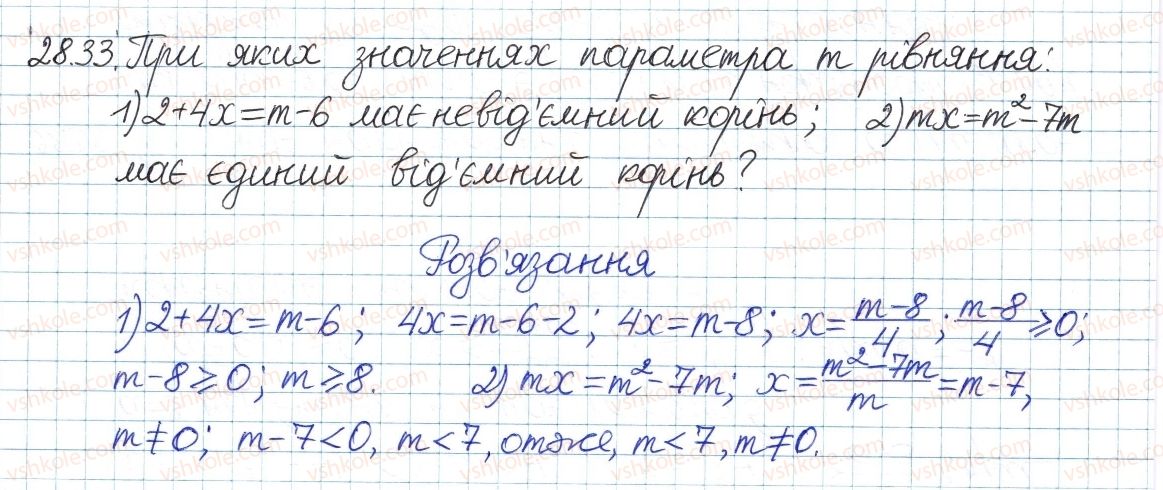 28.33. При яких значеннях параметра m рівняння:
1) 2+4x=m-6 має невід'ємний корінь; 2) mx=m²-7m
має єдиний від'ємний корінь?
Розв'язання
1) 2+4x=m-6; 4x=m-6-2; 4x=m-8; x=\frac{m-8}{4}; \frac{m-8}{4}≥0;
m-8≥0; m≥8. 2) mx=m²-7m; x=\frac{m²-7m}{m}=m-7,
m≠0; m-7<0, m<7, отже, m<7, m≠0.